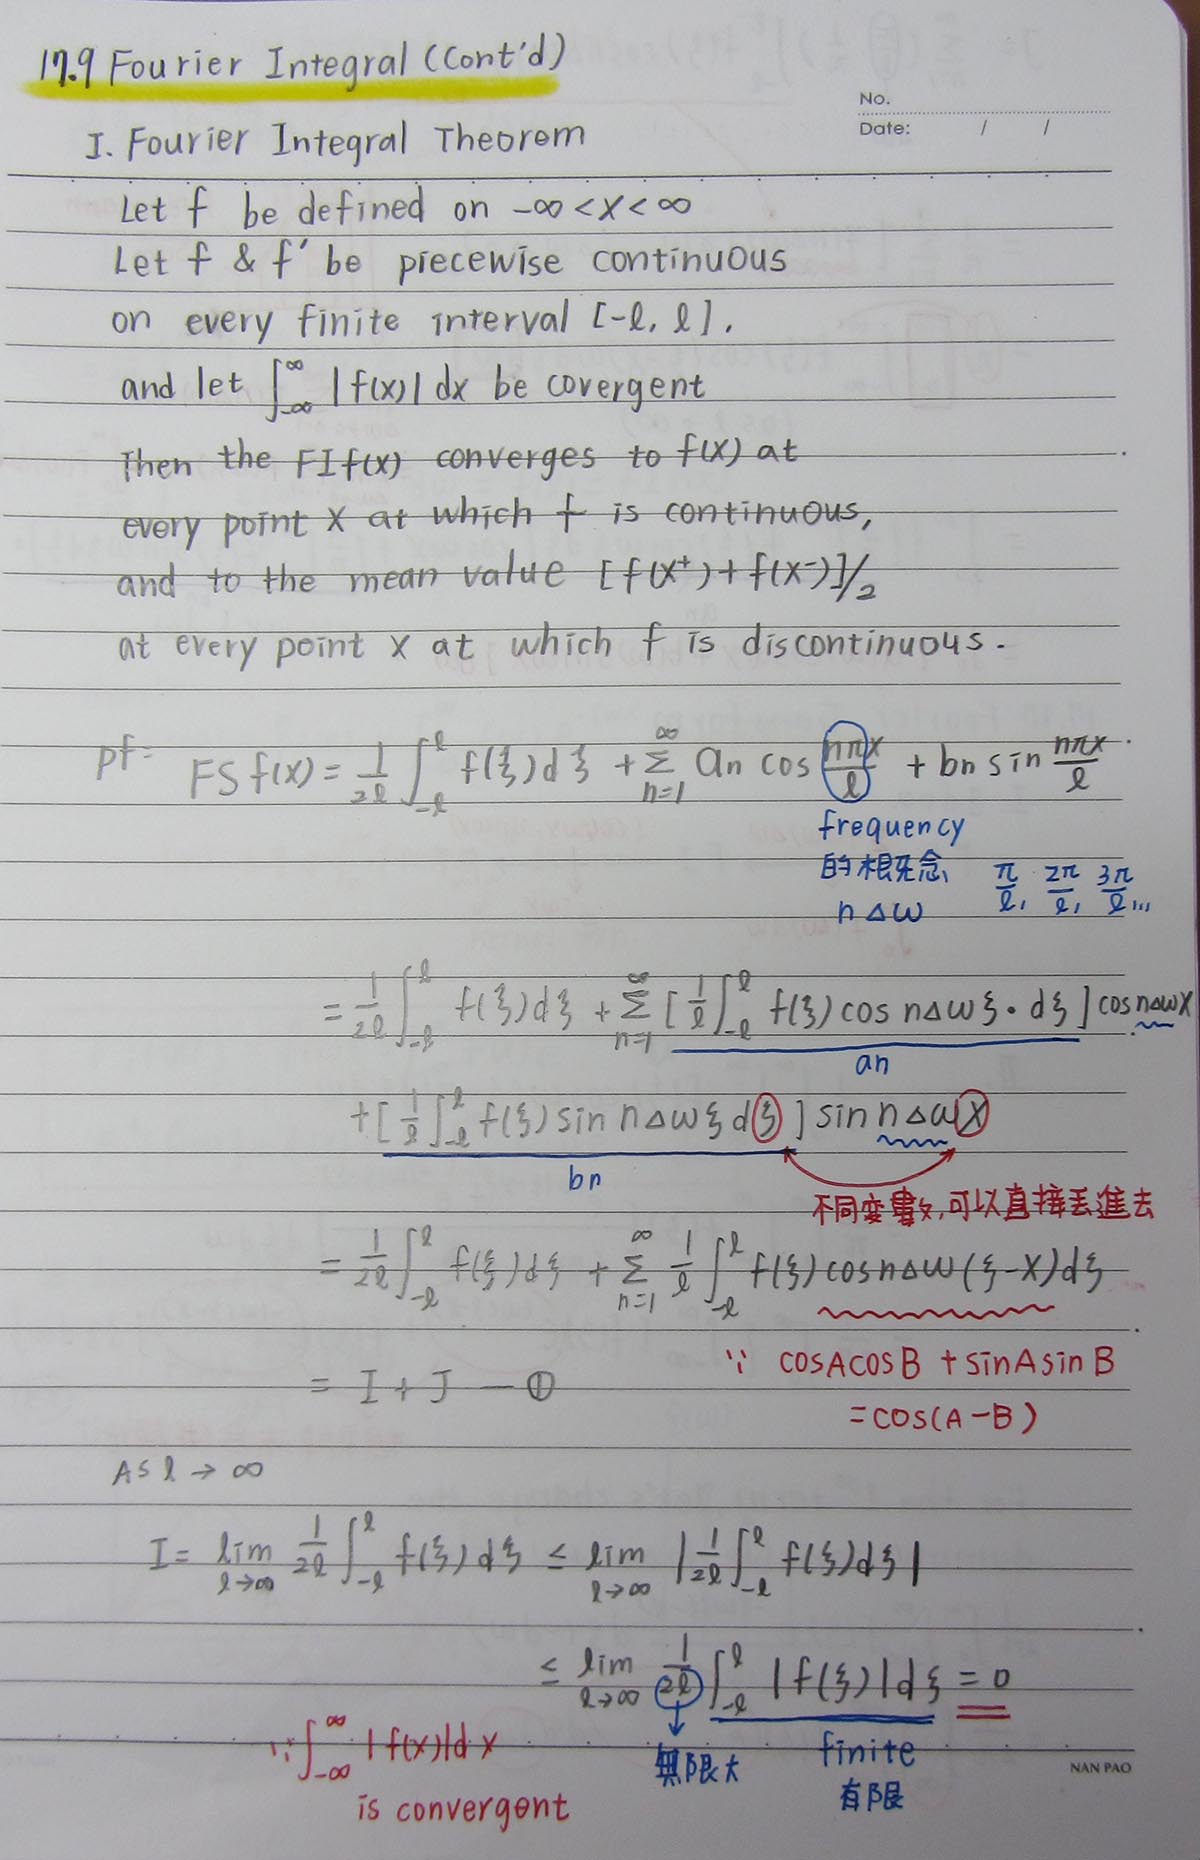 17.9 Fourier Integral (Cont'd)
No.
Date: / /
I. Fourier Integral Theorem
Let f be defined on -∞ < x < ∞
Let f & f' be piecewise continuous
on every finite interval [-ℓ, ℓ].
and let ∫_{-∞}^{∞} |f(x)| dx be covergent
Then the FI f(x) converges to f(x) at
every point x at which f is continuous,
and to the mean value [f(x⁺) + f(x⁻)]/2
at every point x at which f is discontinuous.
pf: FS f(x) = 1/2ℓ ∫_{-ℓ}^{ℓ} f(ξ)dξ + Σ_{n=1}^{∞} an cos nπx/ℓ + bn sin nπx/ℓ
frequency
的概念
nΔω π/ℓ, 2π/ℓ, 3π/ℓ ...
= 1/2ℓ ∫_{-ℓ}^{ℓ} f(ξ)dξ + Σ_{n=1}^{∞} [1/ℓ ∫_{-ℓ}^{ℓ} f(ξ) cos nΔωξ · dξ] cos nΔωx
an
+ [1/ℓ ∫_{-ℓ}^{ℓ} f(ξ) sin nΔωξ dξ] sin nΔωx
bn
不同變數,可以直接丟進去
= 1/2ℓ ∫_{-ℓ}^{ℓ} f(ξ)dξ + Σ_{n=1}^{∞} 1/ℓ ∫_{-ℓ}^{ℓ} f(ξ) cos nΔω(ξ-x)dξ
∵ cosAcosB + sinAsinB
= cos(A-B)
= I + J — ①
As ℓ → ∞
I = lim_{ℓ→∞} 1/2ℓ ∫_{-ℓ}^{ℓ} f(ξ)dξ ≤ lim_{ℓ→∞} |1/2ℓ ∫_{-ℓ}^{ℓ} f(ξ)dξ|
≤ lim_{ℓ→∞} 1/2ℓ ∫_{-ℓ}^{ℓ} |f(ξ)|dξ = 0
∵ ∫_{-∞}^{∞} |f(x)|dx
is convergent
無限大
finite
有限
NAN PAO